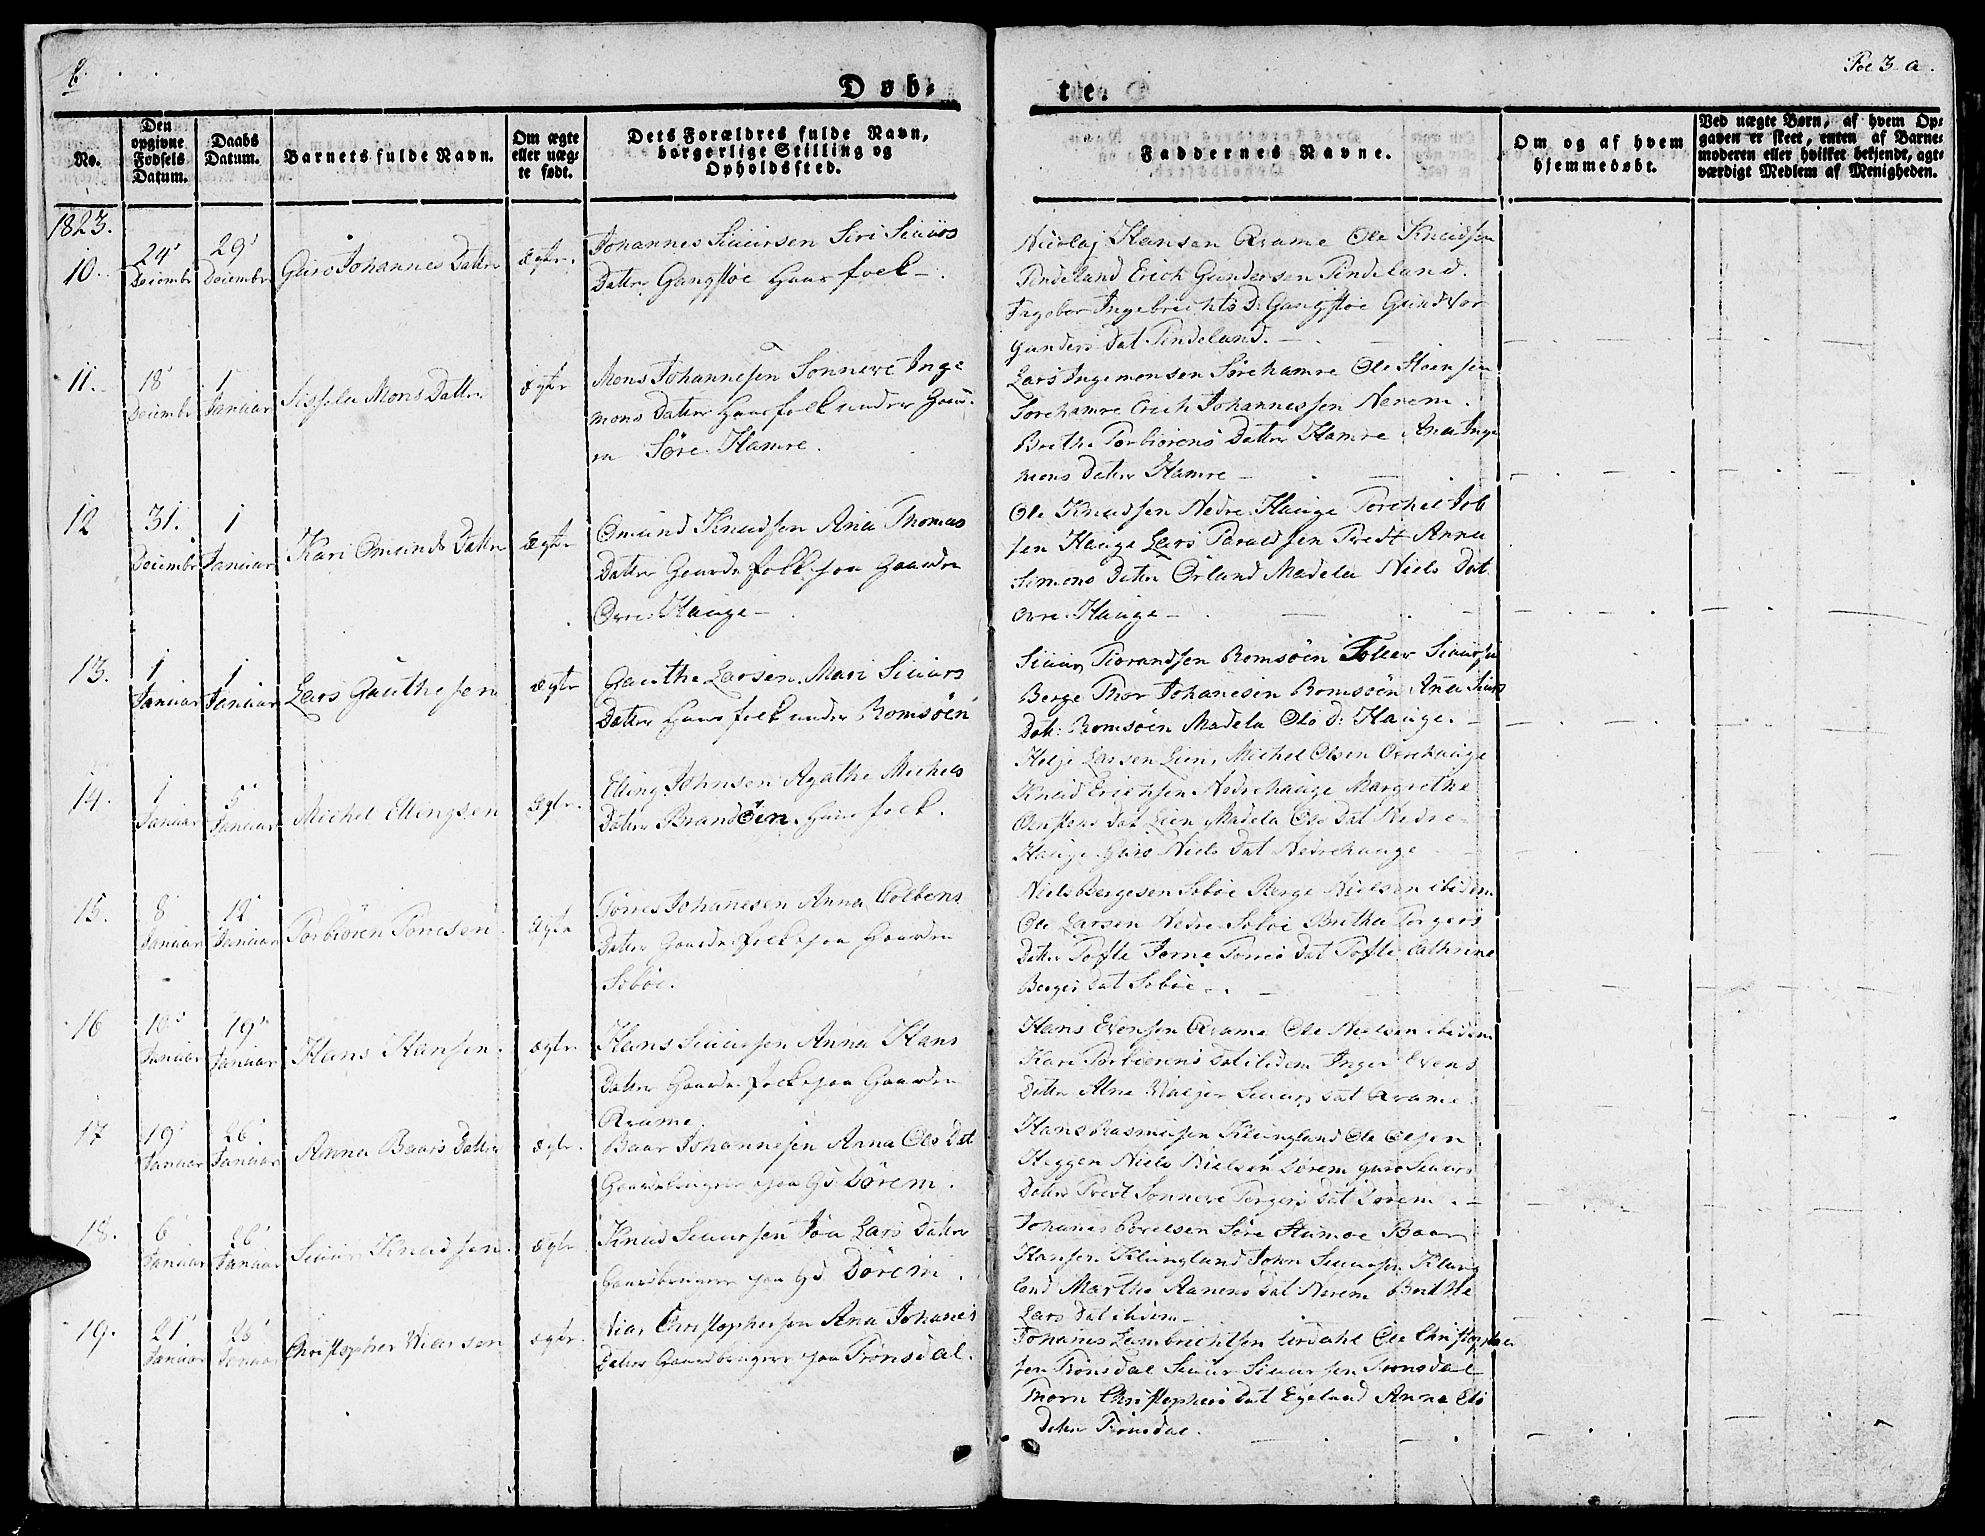 b.
Døb-
te.
Fol 3 a.
No.
Den opgivne Fødsels Datum.
Daabs Datum.
Barnets fulde Navn.
Om ægte eller uægte født.
Dets Forældres fulde Navn, borgerlige Stilling og Opholdssted.
Faddernes Navne.
Om og af hvem hjemmedøbt.
Ved uægte Børn, af hvem Opgaven er skeet, enten af Barnemoderen eller hvilket bekjendt, agtværdigt Medlem af Menigheden.
1823.
10.
24'
Decembr
29'
Decembr
Guro Johannes Datter
ægte.
Johannes Siuursen Siri Siuurs
Datter Gangstøe Huusfolk
Nicolaj Hansen Qvame Ole Knudsen
Tindeland Erich Gundersen Tindeland.
Ingebor Ingebrichts D: Gangstøe
Gunders Dat Tindeland.
11.
18'
Decembr
1
Januar
Sissela Mons Datter
ægte
Mons Johannesen Sonneve Inge
mons Datter Huusfolk under
Søre Hamre.
Lars Ingemonsen Sørehamre Ole
Sørehamre Erich Johannessen Nerem.
Brithe Torbiørens Datter Hamre Ana Inge
mons Datter Hamre
12
31.
Decembr
1
Januar
Kari Omunds Datter
ægte
Omund Knudsen Ana Thomas
Datter Gaardefolk paa Gaarden
Øvre Hauge
Ole Knudsen Nedre Hauge Torchel
sen Hauge Lars Tvedt Anna
Simons Datter Ørland Madela Niels Dat
øvre Hauge
13.
1
Januar
1
Januar
Lars Gauthesen
ægte
Gauthe Larsen Mari Siuurs
Datter Huusfolk under Romsøen
Siuur Romsøen Siuursen
Berge Thor Johanesen Romsøen Ana Siurs
Dat: Romsøen Madela Ols D: Hauge.
14.
1
Januar
5'
Januar
Michel Ellingsen
ægte.
Elling Johnsen Agathe Michels
Datter Brandøen Huusfolk.
Helje Larsen Lien, Michel Olsen Øvrehauge
Knud Erichsen Nedrehauge Margrethe
Dat Lien Madela Ols Dat Nedre
Hauge Guro Niels Dat Nedrehauge
15.
8'
Januar
12'
Januar
Torbiören Torresen
ægte
Torres Johanesen Anna Colbens
Datter Gaardefolk paa Gaarden
Søbøe.
Niels Bergesen Søbøe Berge Nielsen ibidem
Ole Larsen Nedre Søbøe Britha Torgers
Datter Tofte Torres Dat Tofte Cathrine
Berges Dat Søbøe
16
10'
Januar
19'
Januar
Hans Hansen.
ægte
Hans Siuursen Anna Hans
Datter Gaardefolk paa Gaarden
Qvame.
Hans Evensen Qvame Ole Nielsen ibidem
Kari Torbiørens Dat ibidem Inger Evens
Datter Siuurs Dat Qvame
17
19'
Januar
26'
Januar
Anna Baars Datter
ægte.
Baar Johannesen Anna Ols Dat
Gaardbruger paa Gd Dörem.
Hans Rasmussen Klungland Ole Olsen
Heggen Niels Nielsen Dörem Guro Siuurs
Datter Sonneve Torgers Dat Dorem.
18.
6'
Januar
26'
Januar
Siuur Knudsen
ægte
Knud Siuursen Lars Datter
Gaardbruger paa Gd Dörem.
Johanes Søre Baar
Hansen Klungland John Siuursen Klung
land Martha Dat Nerem Brithe
Lars Dat ibidem
19.
21'
Januar
26'
Januar
Christopher Wiarsen
ægte.
Wiar Christophersen Ana Johanes
Datter Gaardbruger paa Trönsdal.
Johanes Lambrechtsen Ole Christopher
sen Trönsdal Siuur Siuursen Trönsdal
Christophers Dat Egeland Anna Ols
Datter Trönsdal.